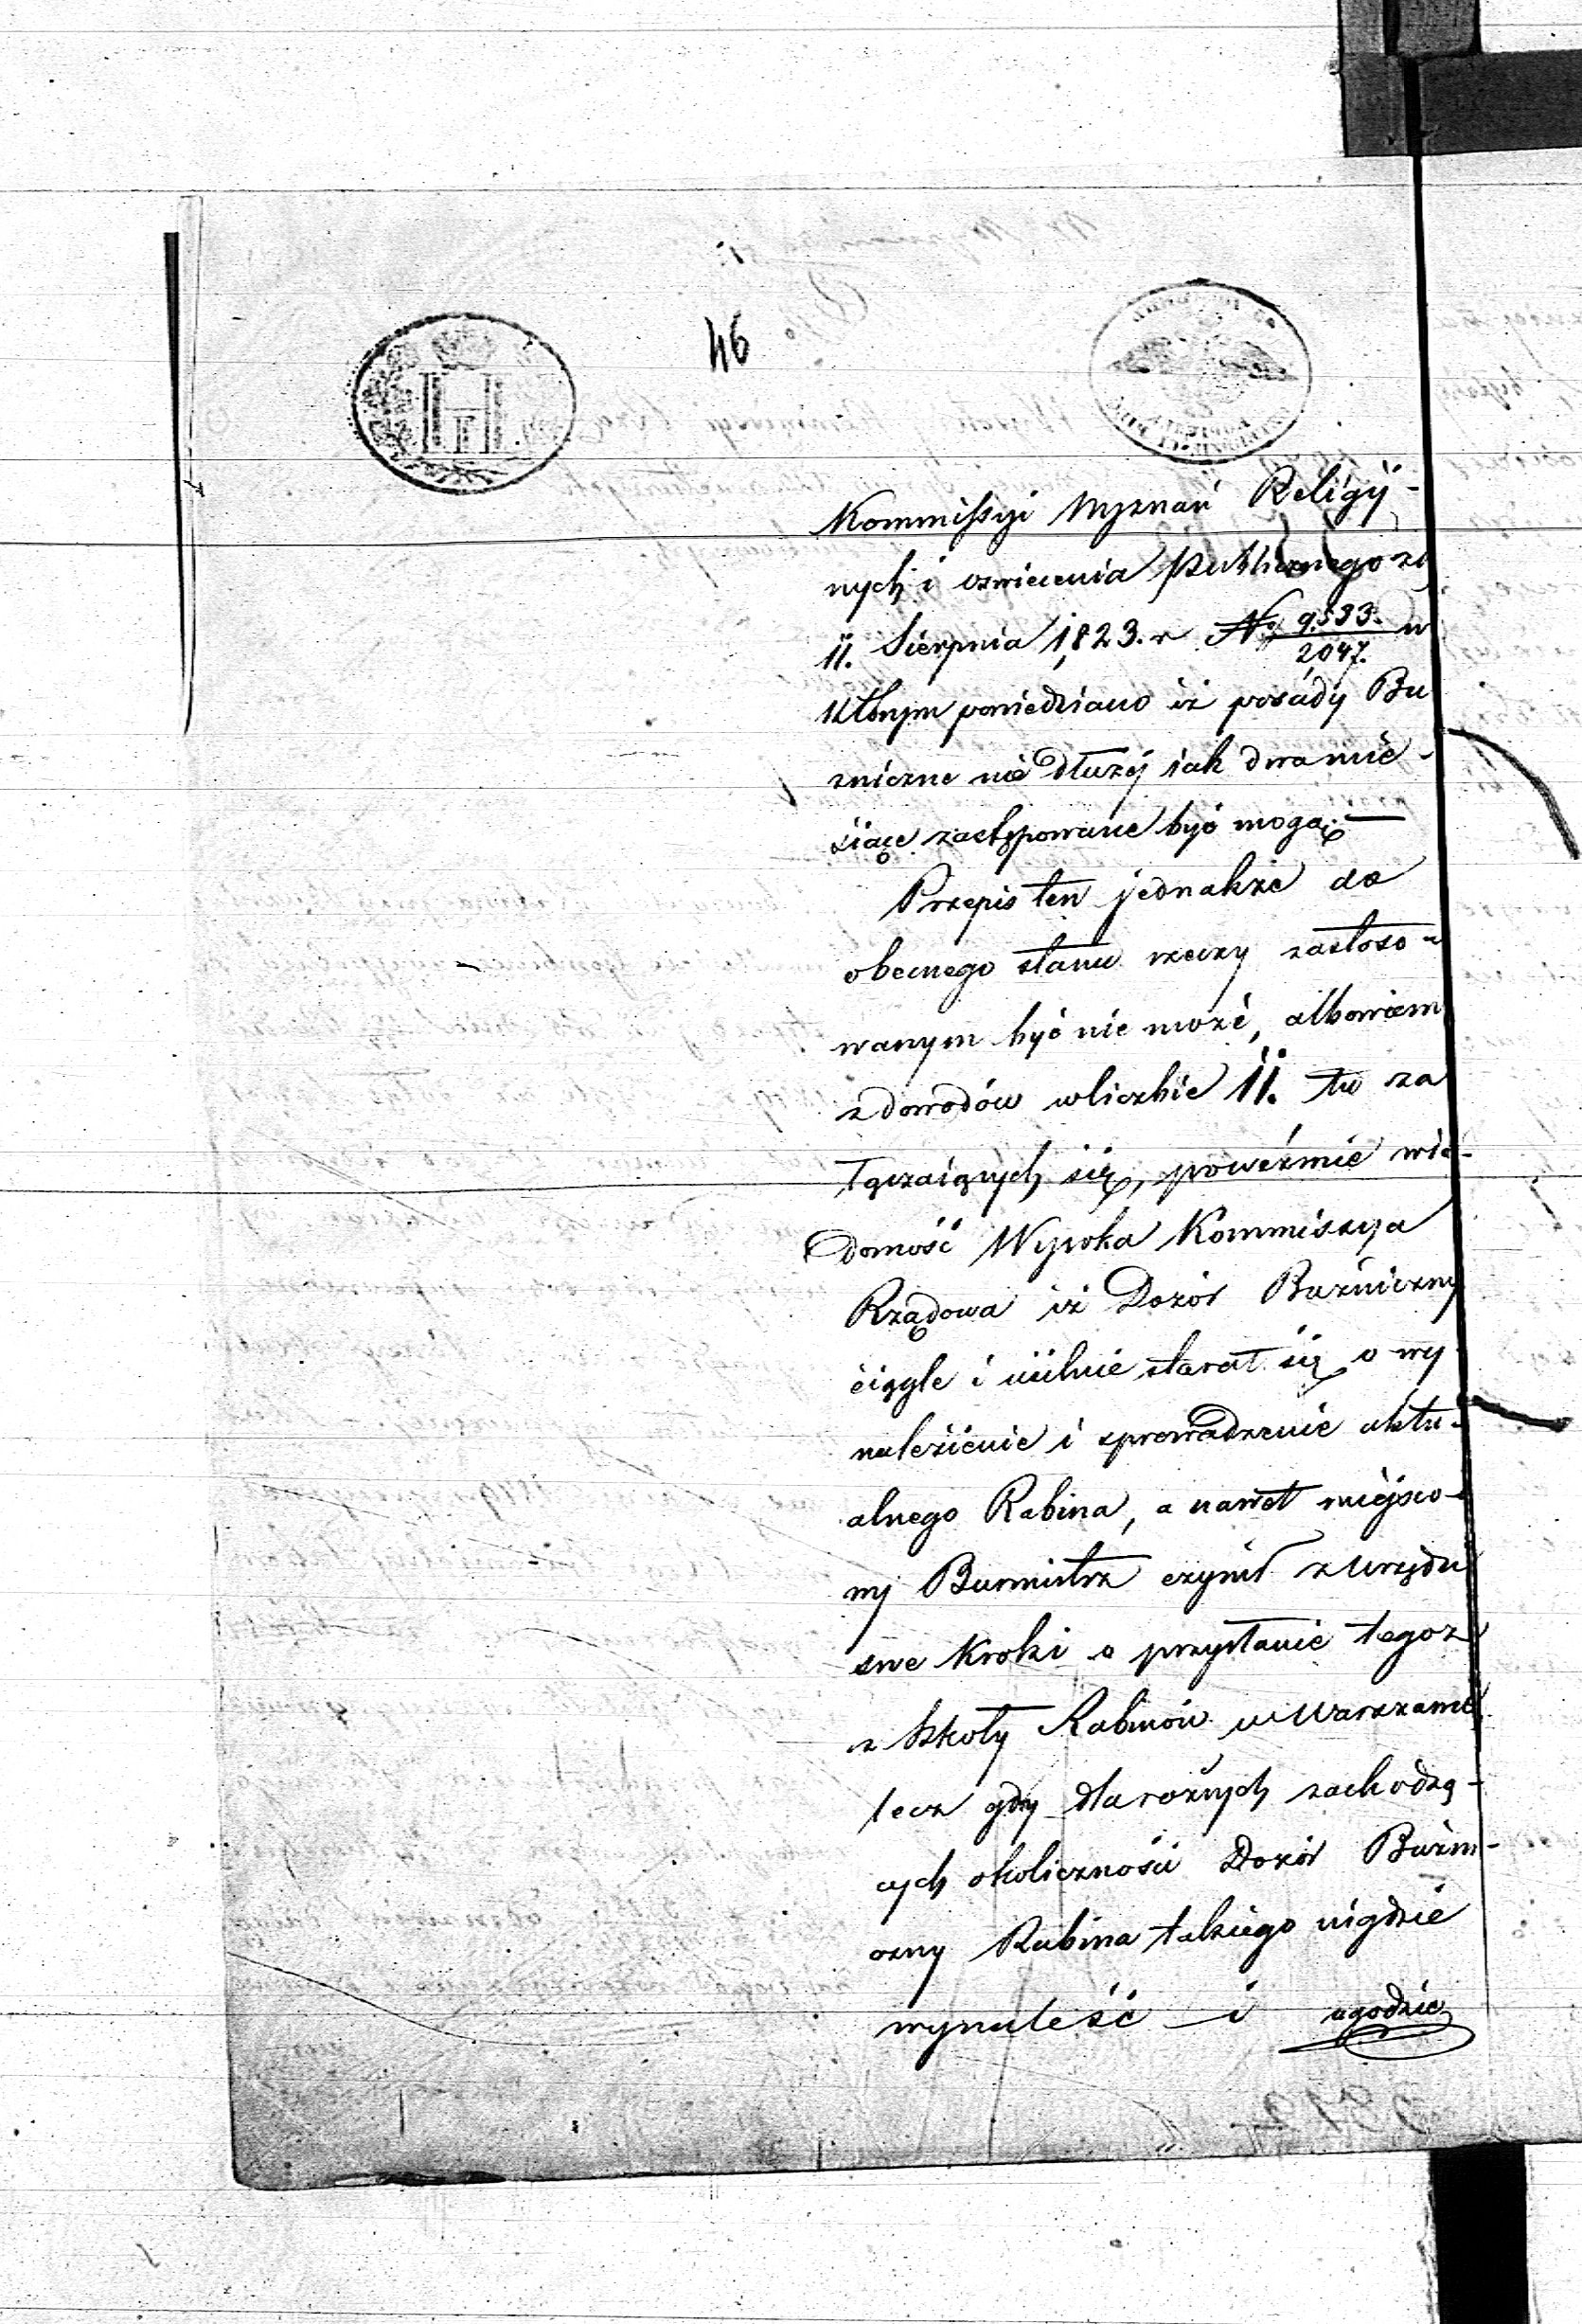 46
Kommissyi Wyznań Religij-
nych i oswiecenia Publicznego zd
11. Sierpnia 1823. r No 9.533./2047. w
którym powiedziano iż posady Bu
zniczne nie dłużej iak dwa mie-
siące zastępowane być mogą. —
Przepis ten jednakże do
obecnego stanu rzeczy zastoso-
wanym być nie może, albowiem
z dowodów wliczbie 11. tu za
łączaiących się, poweźmie wia-
domość Wysoka Kommissya
Rządowa iż Dozór Bużniczny
ciągle i usilnie starał się o wy
nalezienie i sprowadzenie aktu-
alnego Rabina, a nawet miejsco-
wy Burmistrz czynił z Urzędu
swe Kroki o przysłanie tegoz
z Szkoły Rabinów w Warszawie
lecz gdy dla rożnych zachodzą-
cych okoliczności Dozór Bużni-
czny Rabina takiego nigdzie
wynaleść i ugodzić